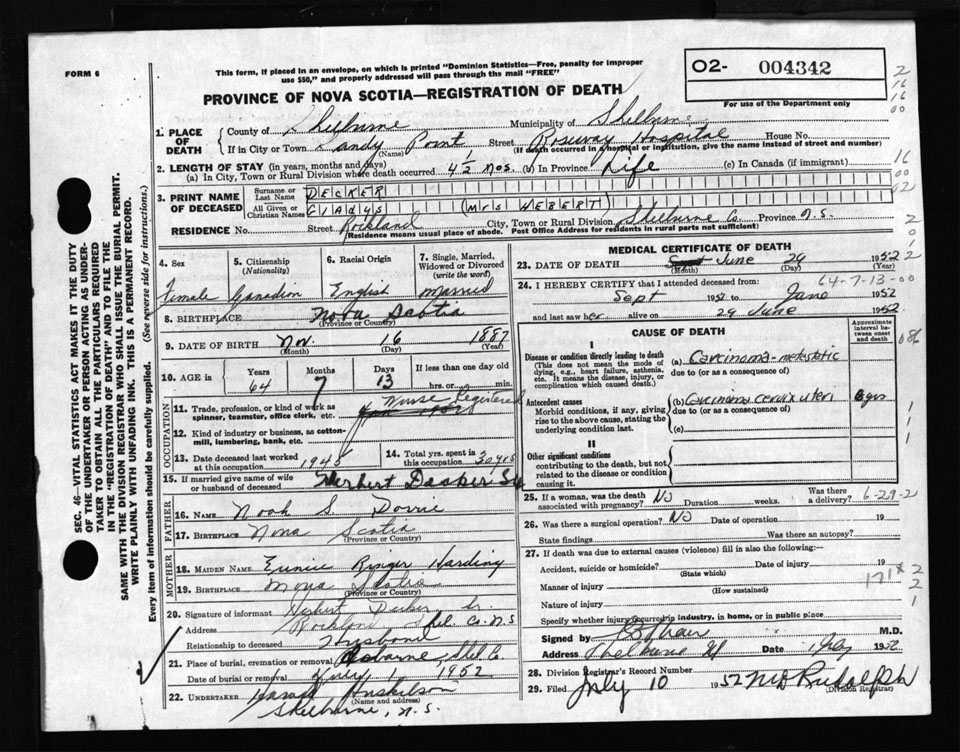 FORM 6
This form, if placed in an envelope, on which is printed "Dominion Statistics—Free, penalty for improper use $50," and properly addressed will pass through the mail "FREE"
O2- 004342
For use of the Department only
PROVINCE OF NOVA SCOTIA—REGISTRATION OF DEATH
1. PLACE OF DEATH
County of Shelburne Municipality of Shelburne
If in City or Town Sandy Point Street Roseway Hospital House No.
(Name) (If death occurred in a hospital or institution, give the name instead of street and number)
2. LENGTH OF STAY (in years, months and days)
(a) In City, Town or Rural Division where death occurred 4½ mos. (b) In Province Life (c) In Canada (if immigrant)
3. PRINT NAME OF DECEASED
Surname or Last Name DECKER
All Given or Christian Names Gladys (Mrs HEBERT)
RESIDENCE No. Street Rockland City, Town or Rural Division Shelburne Co. Province N.S.
(Residence means usual place of abode. Post Office Address for residents in rural parts not sufficient)
4. Sex Female
5. Citizenship (Nationality) Canadian
6. Racial Origin English
7. Single, Married, Widowed or Divorced (write the word) Married
8. BIRTHPLACE Nova Scotia
(Province or Country)
9. DATE OF BIRTH Nov. 16 1887
(Month) (Day) (Year)
10. AGE in Years 64 Months 7 Days 13 If less than one day hrs. or min.
OCCUPATION
11. Trade, profession, or kind of work as spinner, teamster, office clerk, etc. Nurse Registered
12. Kind of industry or business, as cotton-mill, lumbering, bank, etc.
13. Date deceased last worked at this occupation 1945
14. Total yrs. spent in this occupation 30 yrs
15. If married give name of wife or husband of deceased Herbert Decker Sr
FATHER
16. NAME Noah S.
17. BIRTHPLACE Nova Scotia
(Province or Country)
MOTHER
18. MAIDEN NAME Eunice Ringer Harding
19. BIRTHPLACE Nova Scotia
(Province or Country)
20. Signature of informant Herbert Decker Sr.
Address Rockland, Shel. Co. N.S
Relationship to deceased Husband
21. Place of burial, cremation or removal Osborne, Shel Co
Date of burial or removal July 1 1952
22. UNDERTAKER Harold Huskilson
(Name and address)
Shelburne, N.S.
MEDICAL CERTIFICATE OF DEATH
23. DATE OF DEATH June 29 1952
(Month) (Day) (Year)
64-7-13-00
24. I HEREBY CERTIFY that I attended deceased from:
Sept 1951 to June 1952
and last saw her alive on 29 June 1952
CAUSE OF DEATH
Approximate interval between onset and death
I
Disease or condition directly leading to death
(This does not mean the mode of dying, e.g., heart failure, asthenia, etc. It means the disease, injury, or complication which caused death.)
(a) Carcinoma-metastatic
due to (or as a consequence of)
Antecedent causes
Morbid conditions, if any, giving rise to the above cause, stating the underlying condition last.
(b) Carcinoma cervix uteri
due to (or as a consequence of)
(c)
II
Other significant conditions
contributing to the death, but not related to the disease or condition causing it.
25. If a woman, was the death associated with pregnancy? No Duration weeks. Was there a delivery?
6-29-2
26. Was there a surgical operation? No Date of operation 19
State findings Was there an autopsy?
27. If death was due to external causes (violence) fill in also the following:—
Accident, suicide or homicide? Date of injury 19
(State which)
171X
Manner of injury
(How sustained)
Nature of injury
Specify whether injury occurred in industry, in home, or in public place
Signed by M.D.
Address Shelburne NS Date 1952
28. Division Registrar's Record Number
29. Filed July 10 1952 Rudolph
(Division Registrar)
SEC. 46—VITAL STATISTICS ACT MAKES IT THE DUTY OF THE UNDERTAKER OR PERSON ACTING AS UNDERTAKER TO OBTAIN ALL THE PARTICULARS REQUIRED IN THE "REGISTRATION OF DEATH" AND TO FILE THE SAME WITH THE DIVISION REGISTRAR WHO SHALL ISSUE THE BURIAL PERMIT.
WRITE PLAINLY WITH UNFADING INK. THIS IS A PERMANENT RECORD.
Every item of information should be carefully supplied. (See reverse side for instructions.)